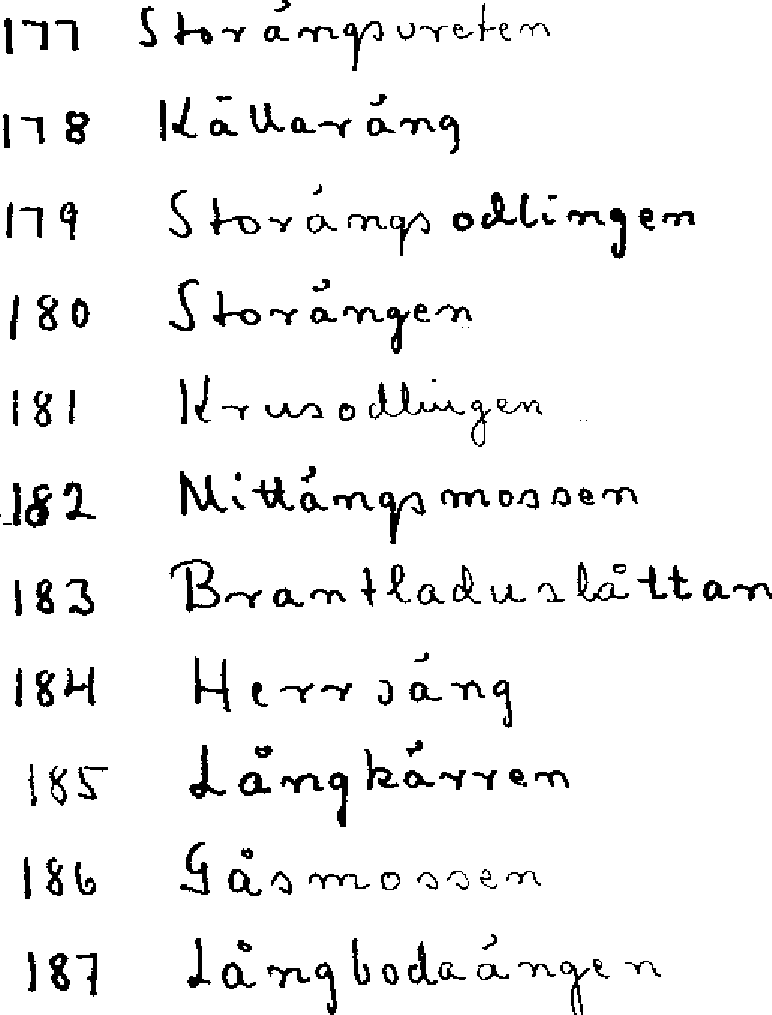 177 Storängsvreten
178 Källaräng
179 Storängsodlingen
180 Storängen
181 Krusodlingen
182 Mittängsmossen
183 Brantladuslåttan
184 Herrsäng
185 Långkärren
186 Gåsmossen
187 Långbodaängen